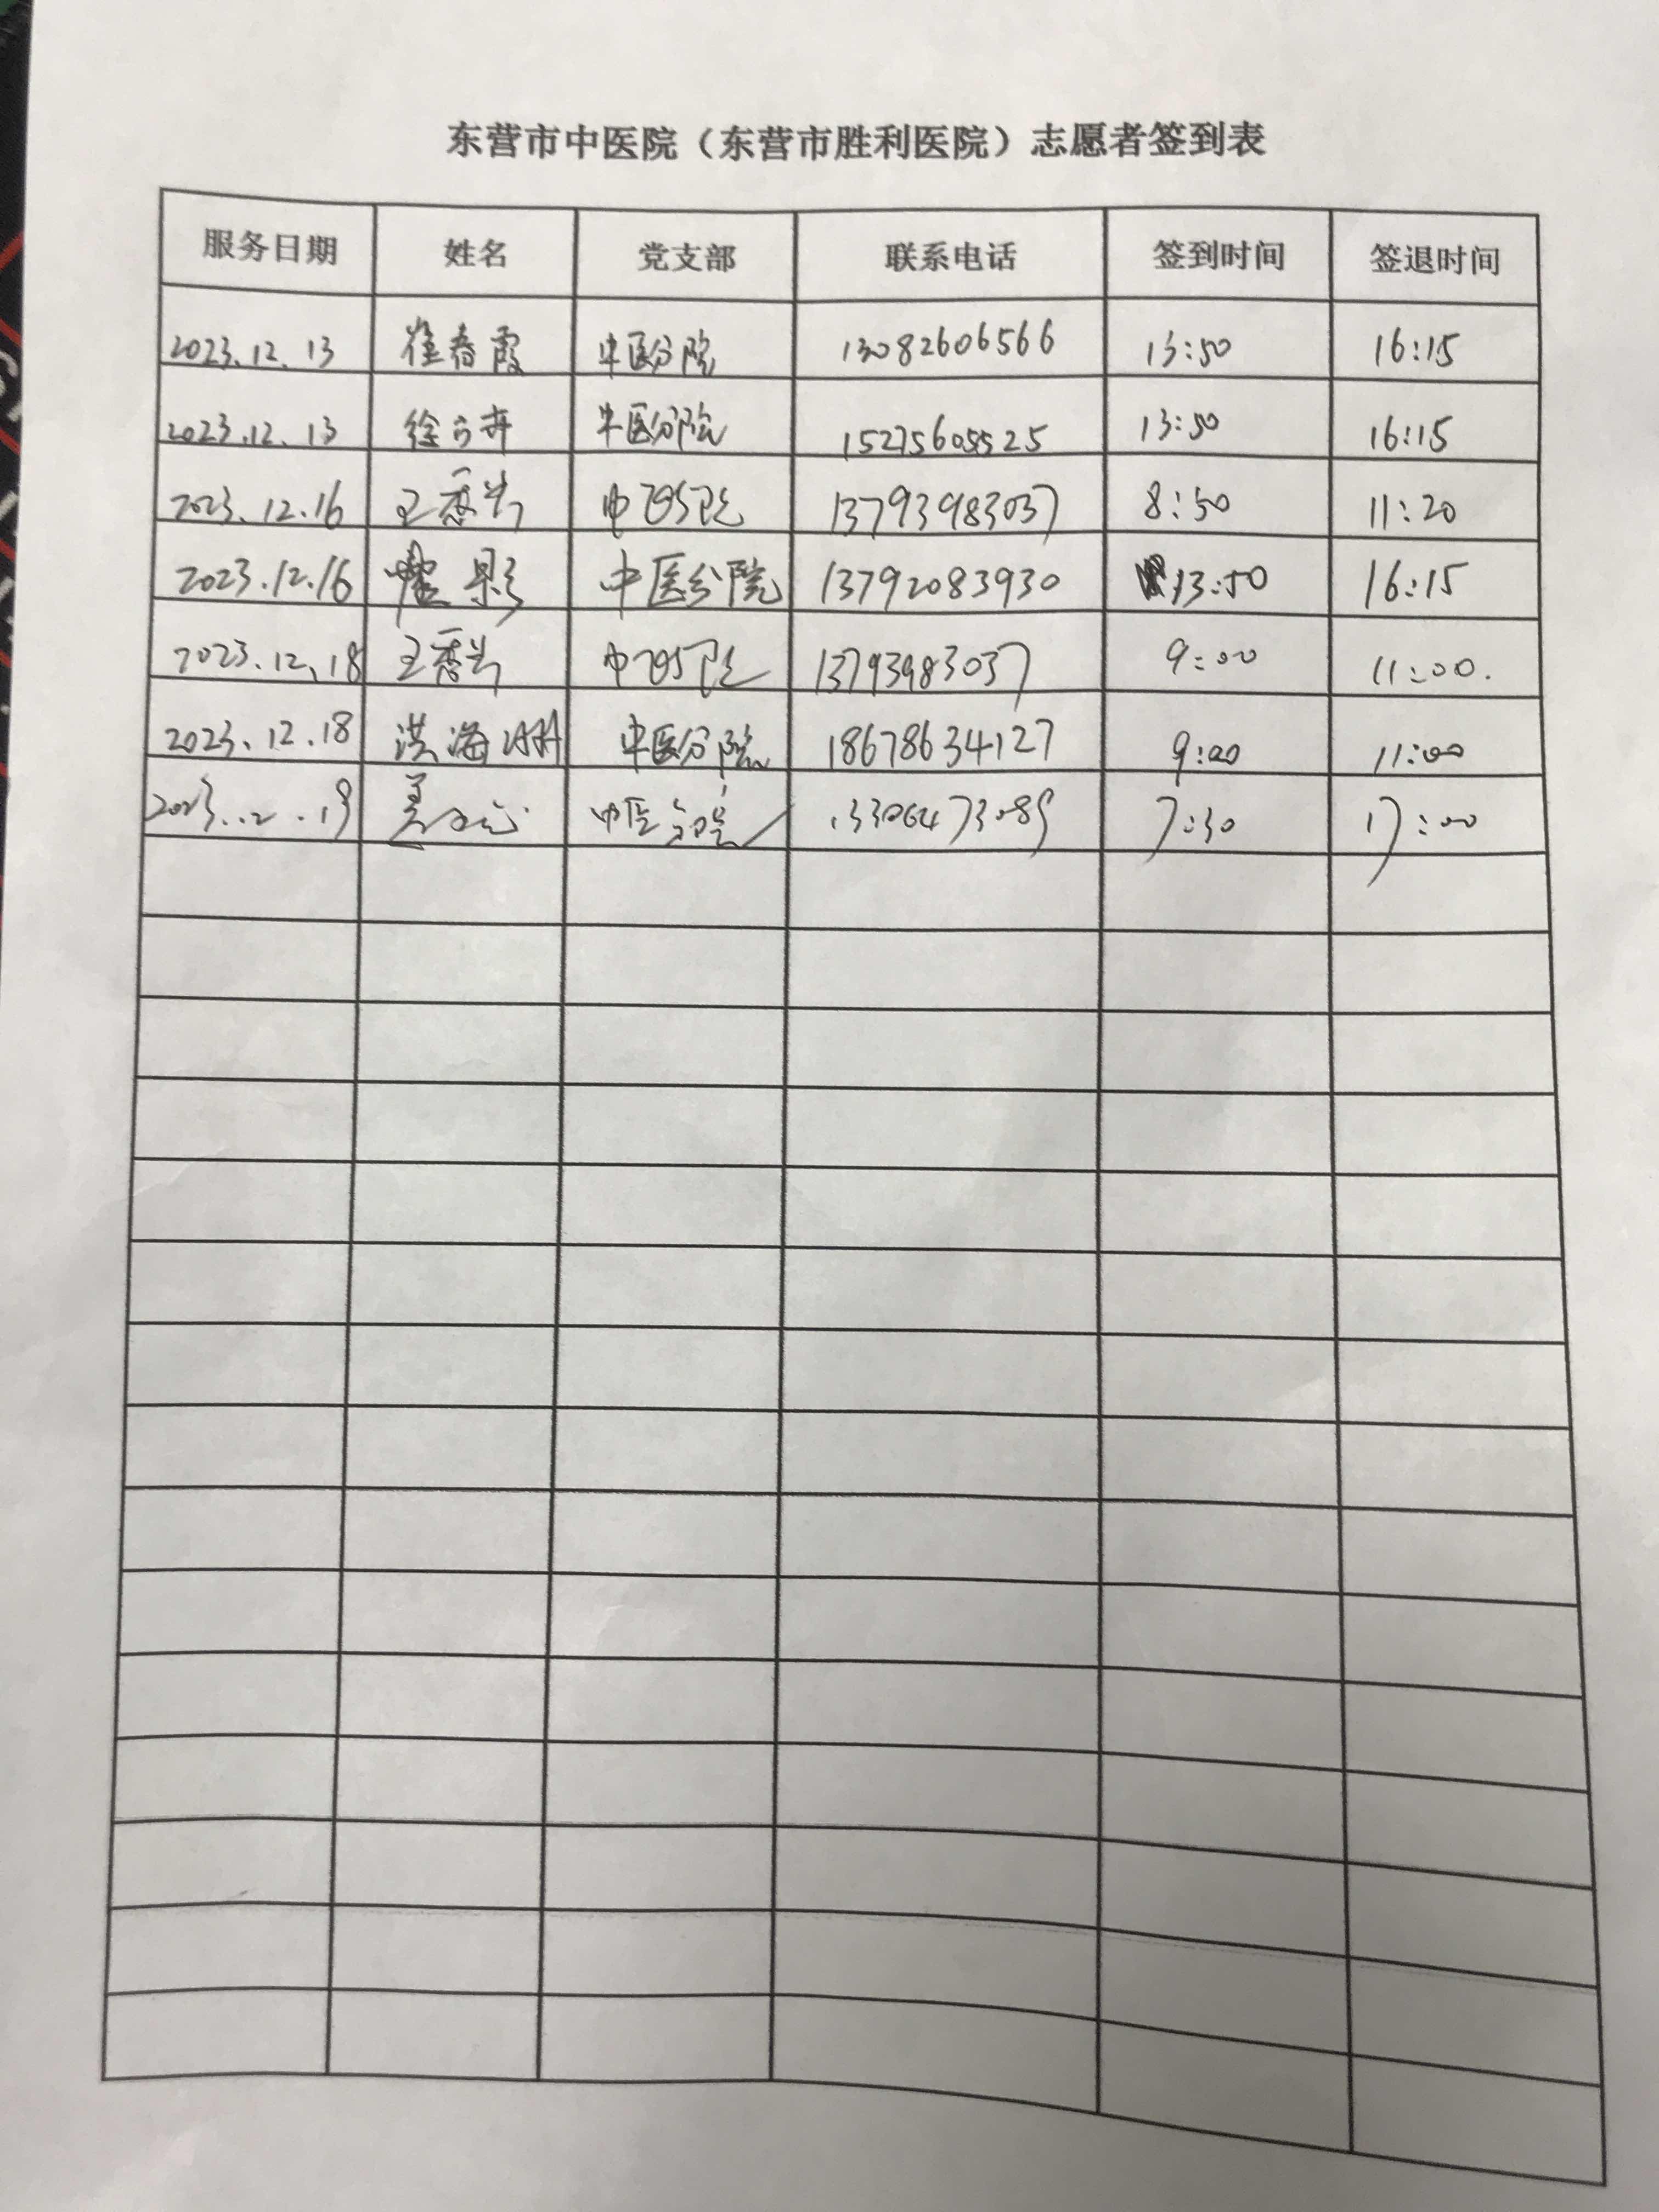 东营市中医院（东营市胜利医院）志愿者签到表
服务日期 姓名 党支部 联系电话 签到时间 签退时间
2023.12.13 崔春霞 中医分院 13082606566 13:50 16:15
2023.12.13 中医分院 15275605525 13:50 16:15
2023.12.16 王秀兰 中医分院 13793983037 8:50 11:20
2023.12.16 影 中医分院 13792083930 13:50 16:15
2023.12.18 王秀兰 中医分院 13793983037 9:00 11:00.
2023.12.18 洪海 中医分院 18678634127 9:00 11:00
2023.12.19 中医分院 13306473089 7:30 17:00